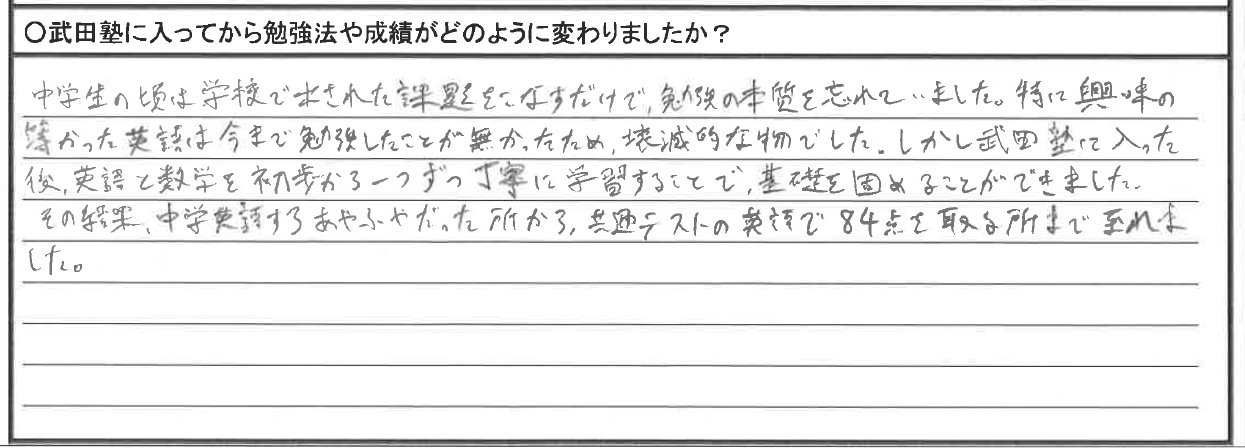 〇武田塾に入ってから勉強法や成績がどのように変わりましたか？
中学生の頃は学校で出された課題をこなすだけで,勉強の本質を忘れていました。特に興味の
薄かった英語は今まで勉強したことが無かったため,壊滅的な物でした。しかし武田塾に入った
後,英語と数学を初歩から一つずつ丁寧に学習することで,基礎を固めることができました。
その結果,中学英語すらあやふやだった所から,共通テストの英語で84点を取る所まで至れま
した。